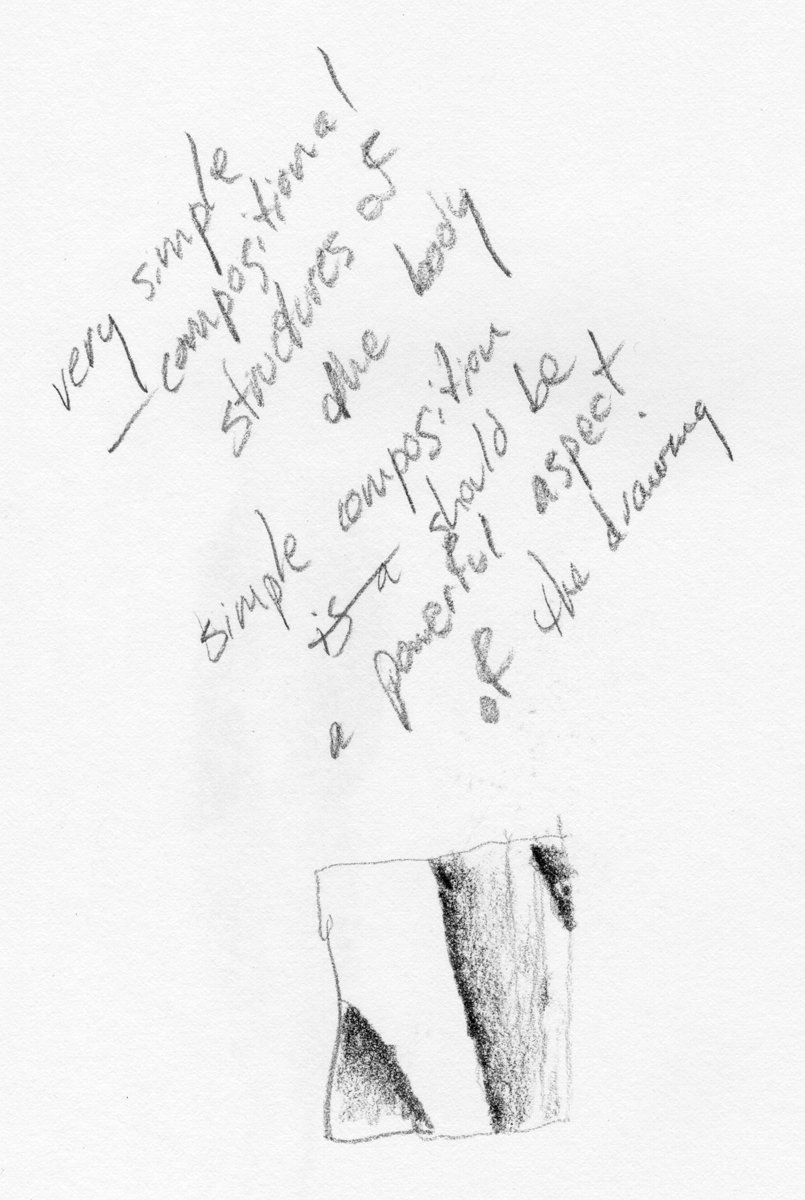 very simple
— compositional
structures of
the body
simple composition
is a should be
a powerful aspect
of the drawing